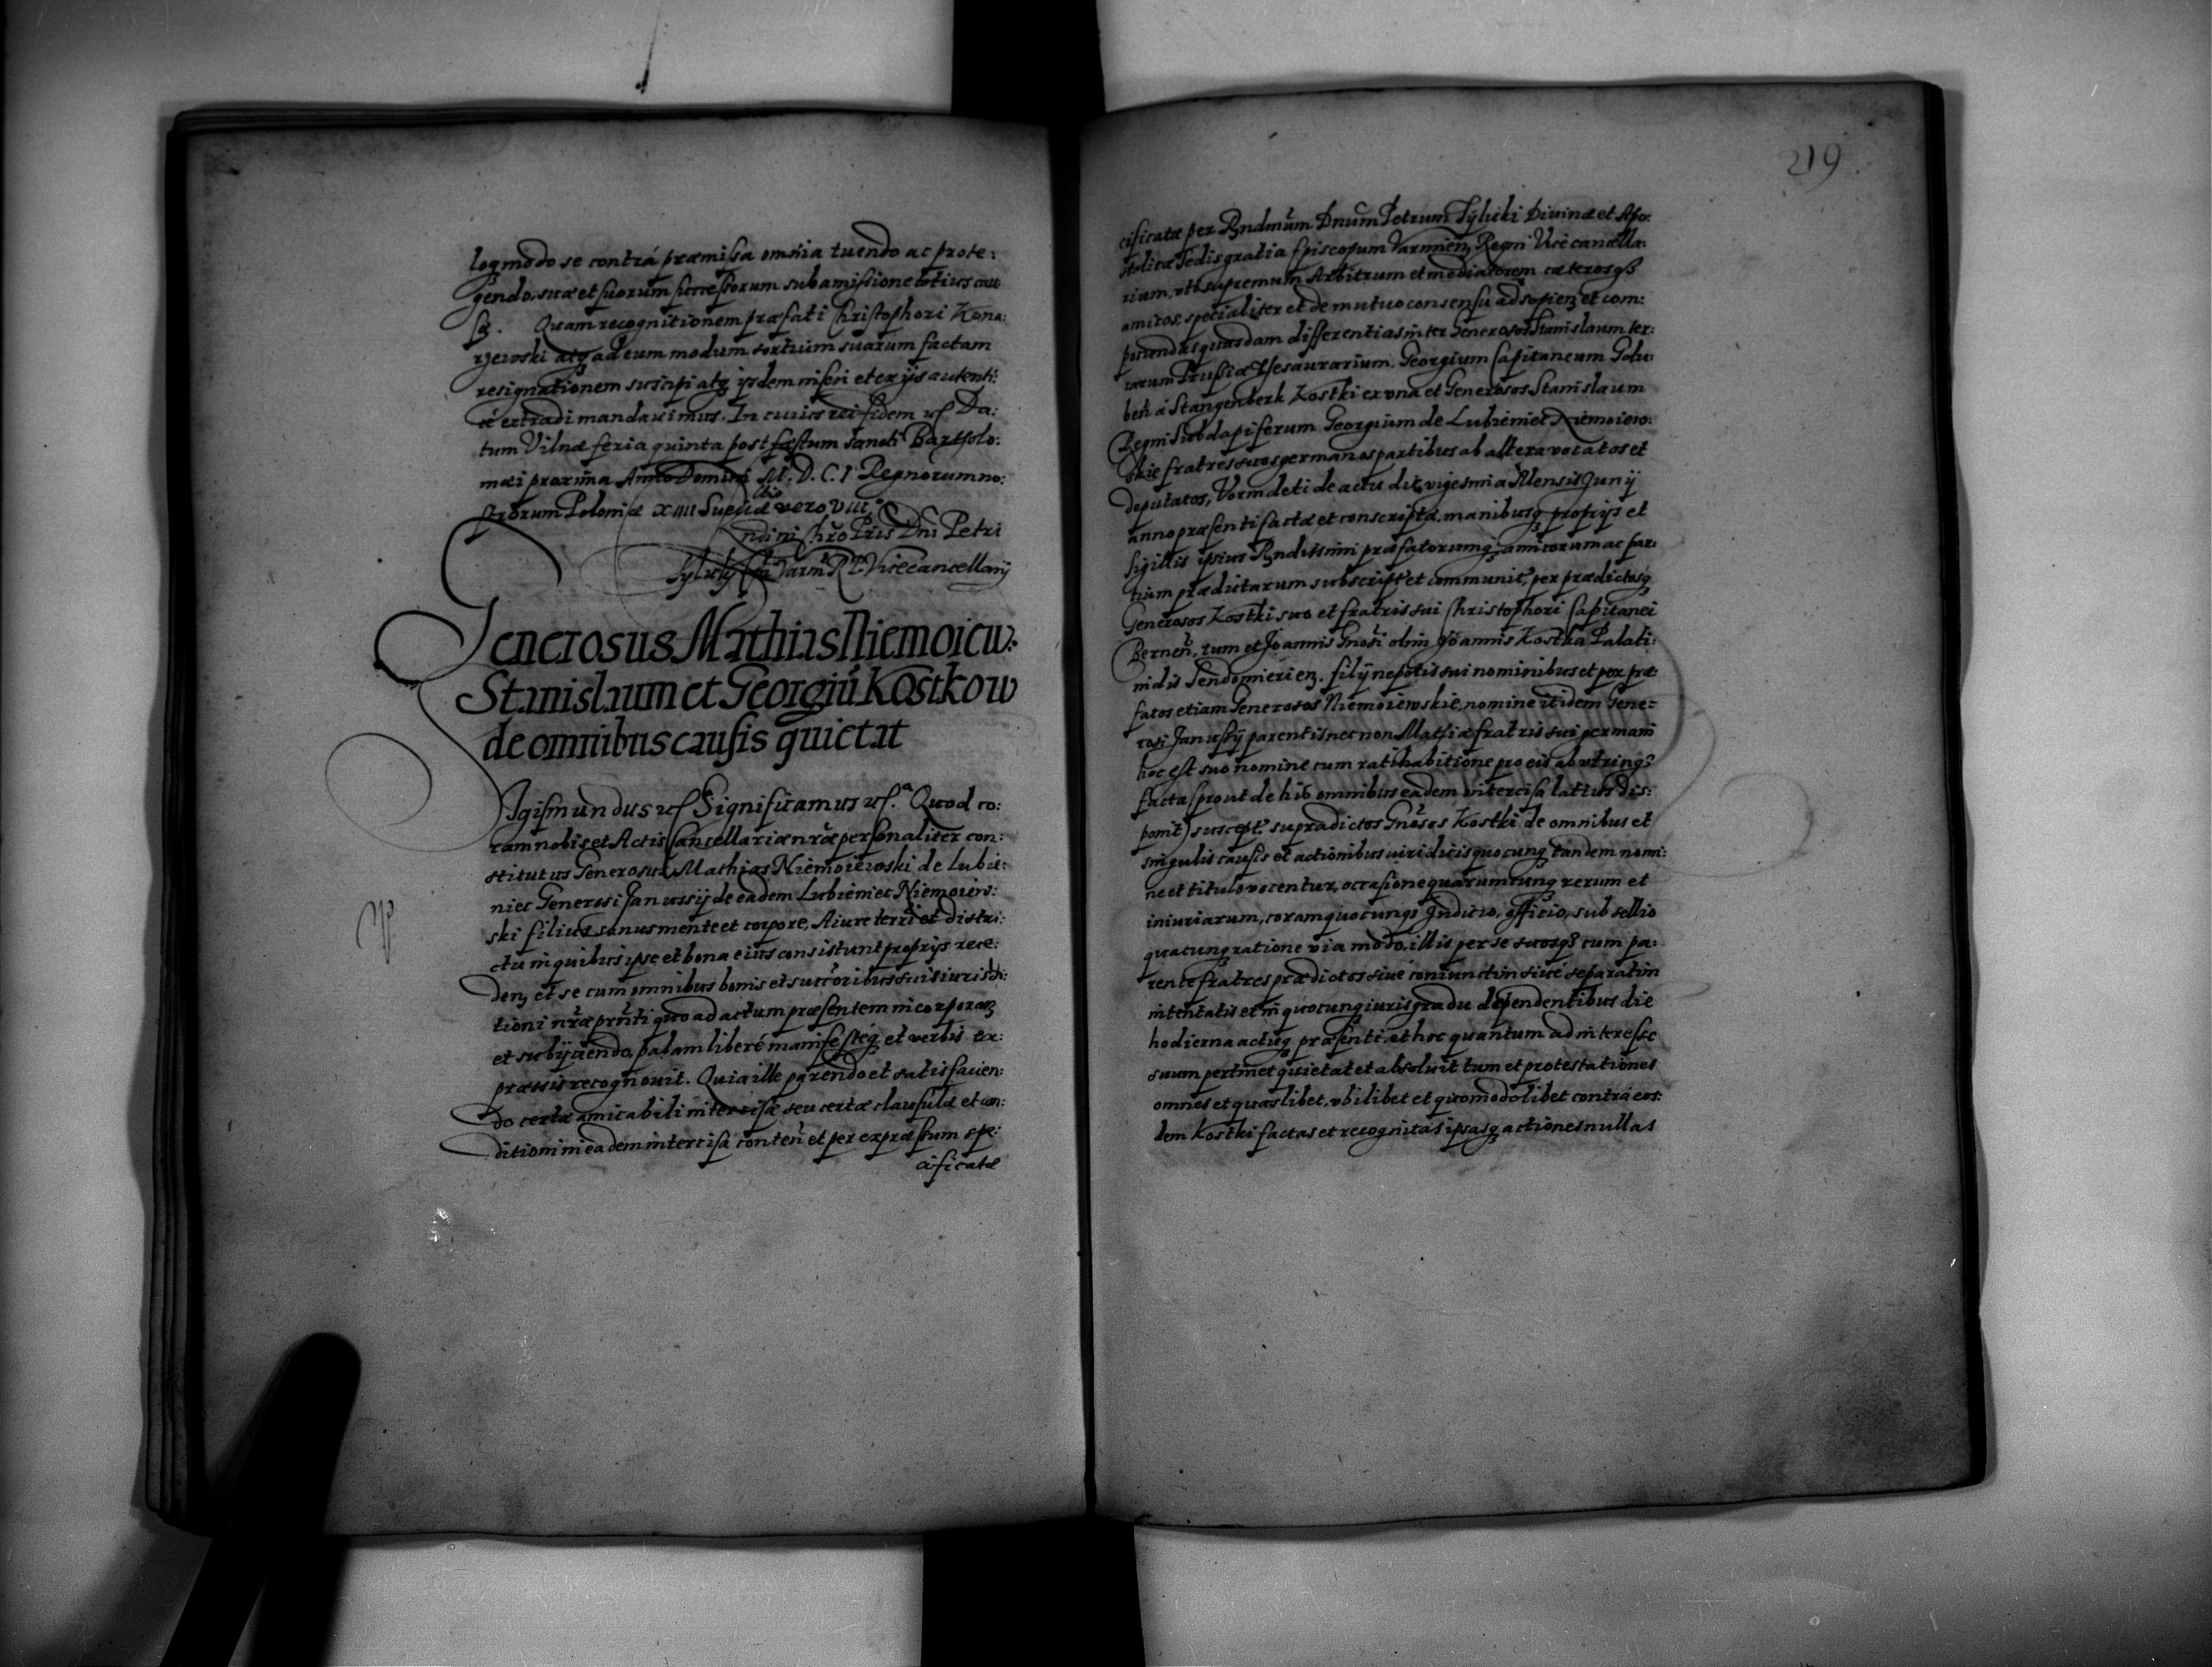 loq modo se contrá præmissa omnia tuendo ac prote:
gendo, suæ et suorum successorum sub amissione totius cau
sæ. Quam recognitionem præfati Christophori Kona:
rzewski atq ad eum modum sortium suarum factam
resignationem suscipi atq ijsdem inseri et ex ijs autenti:
cé extradi mandauimus. In cuius rei fidem etc Da:
tum Vilnæ feria quinta post fæstum sancti Bartholo:
mæi proxima Anno Domini M. D. C. I Regnorum no:
strorum Poloniæ XIIII Sueciæ vero VIII.
ndi in Chro Pris Dni Petri
Tylicky Varm R P Vicecancellarij
Generosus Mathias Niemoiew:
Stanislaum et Georgiú Kostkow
de omnibus causis quietat
Sigismundus etc Significamus etc.ª Quod co:
ram nobis et Actis Cancellariæ nræ personaliter con:
stitutus Generosus Mathias Niemoiewski de Lubie:
niec Generosi Janussij de eadem Lubieniec Niemoiew:
ski filius, sanus mente et corpore, A iure terri et distri:
ctu in quibus ipse et bona eius consistunt proprijs rece:
den, et se cum omnibus bonis et succoribus suis iurisdi:
tioni nræ prnti quo ad actum præsentem incorporan
et subijciendo, palam liberé manifestéq et verbis ex:
præssis recognouit. Quia ille parendo et satisfacien:
do certæ amicabili intercisæ seu certæ clausulæ et con:
ditioni in eadem intercisa conten et per expræssum spe:
cificatæ
219
cificatæ per Rndmum Dnum Petrum Tylicki Diuinæ et Apo:
stolicæ Sedis gratia Episcopum Varmien, Regni Vicecancella:
rium, vti supremum Arbitrum et mediatorem cæterosq
amicos, specialiter et de mutuo consensu ad sopien et com:
ponendas quasdam differentias inter Generosos Stanislaum ter:
rarum Prussiæ Thesaurarium. Georgium Capitaneum Golu:
ben á Stangenberk Kostki ex vna et Generosos Stanislaum
Regni Subdapiferum Georgium de Lubieniec Niemoiew:
skie fratres suos germanos partibus ab altera vocatos et
deputatos, Vormdeti de actu die vigesima Mensis Junij
anno præsenti factæ et conscriptæ, manibusq proprijs et
sigillis ipsius Rndissimi præfatorumq amicorum ac par:
tium prædictarum subscript et communit, per prædictosq
Generosos Kostki suo et fratris sui Christophori Capitanei
Bernen, tum et Joannis Gnosi olim Joannis Kostka Palati:
nidis Sendomirien. filij nepotis sui nominibus et per præ
fatos etiam Generosos Niemoiewskie, nomine itidem Gene:
rosi Janussij parentis nec non Mathiæ fratris sui germani
hoc est suo nomine cum ratihabitione pro eis ab vtrinq
facta (prout de his omnibus eadem intercisa latius dis:
ponit) suscept. supradictos Gnosos Kostki de omnibus et
singulis causis et actionibus iuridicis quocunq tandem nomi:
ne et titulo vocentur, occasione quarumcunq rerum et
iniuriarum, coram quocunq Judicio, officio, subsellio
quacunq ratione via modo, illis per se suosq cum pa:
rente fratres prædictos siue coniunctim siué separatim
intentatis et in quocunq iuris gradu dependentibus die
hodierna actuq præsenti. et hoc quantum ad interesse
suum pertinet quietat et absoluit tum et protestationes
omnes et quaslibet, vbilibet et quomodolibet contrá eos:
dem Kostki factas et recognitas ipsasq actiones nullas